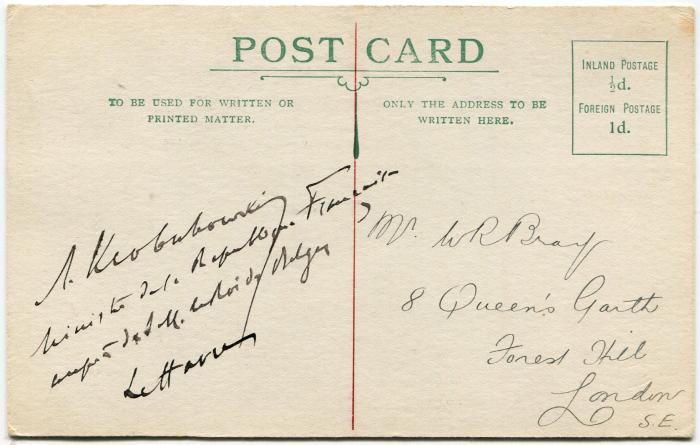 POST CARD
TO BE USED FOR WRITTEN OR
PRINTED MATTER.
ONLY THE ADDRESS TO BE
WRITTEN HERE.
INLAND POSTAGE
½d.
FOREIGN POSTAGE
1d.
A. Klobukowski
Ministre de la République Française
auprès de S. M. le Roi des Belges
Le Havre
Mr. W R Bray
8 Queen's Garth
Forest Hill
London
S.E.